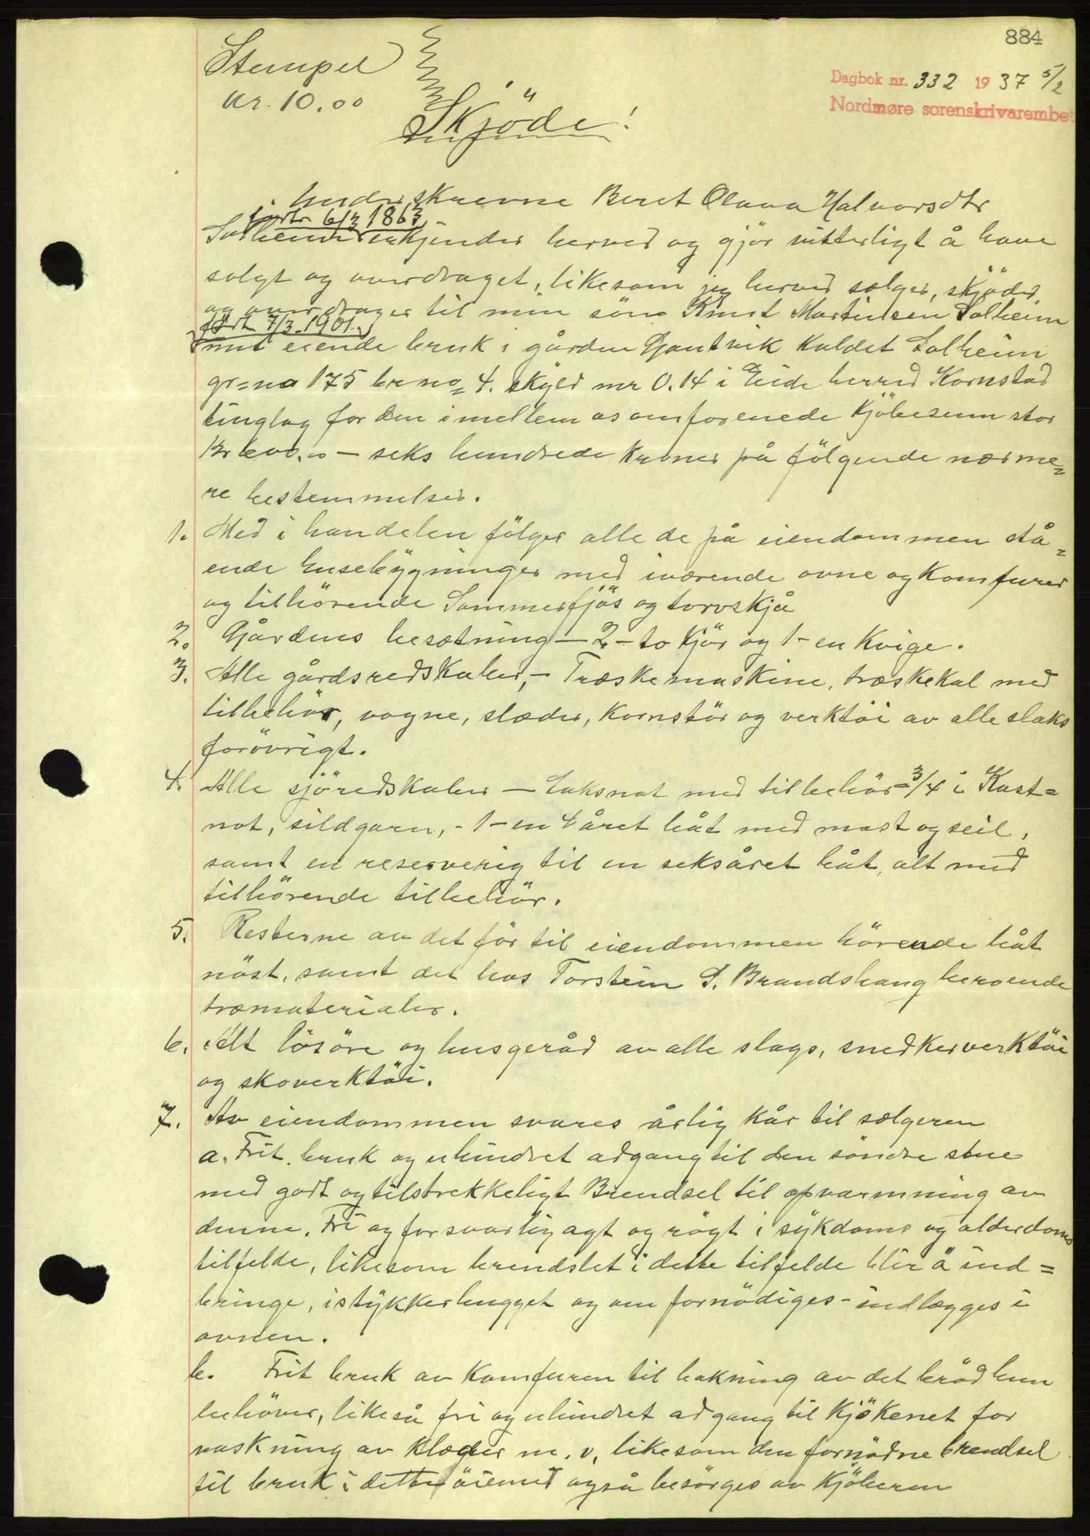 884
Stempel
Kr. 10.00
Dagbok nr. 332 1937 5/2
Nordmøre sorenskrivarembet
Skjöde!
Underskrevne Beret Olava Halvorsdtr
født 6/3 1863
Solheim erkjender herved og gjör vitterligt å have
solgt og overdraget, likesom jeg herved sælger, skjöder
og overdrager til min sön Knut Martinsen Solheim
født 7/3-1901.
mit eiende bruk i gården Gjautvik kaldet Solheim
gr=no 175 br no= 4. skyld mr 0.14 i Eide herred Kornstad
tinglag for den imellem os omforenede kjöbesum stor
Kr 600.00 – seks hundrede kroner på fölgende nærme=
re bestemmelser.
1. Med i handelen fölger alle de på eiendommen stå=
ende husebygninger med iværende ovne og komfurer
og tilhörende Sommerfjös og torvskjå
2. Gårdens besætning – 2 – to kjör og 1 – en kvige.
3. Alle gårdsredskaber, – Træskemaskine, træskekal med
tilbehör, vogne, slæder, kornstör og verktöi av alle slaks
forövrigt.
4. Alle sjöredskaber – Laksnot med tilbehör – 3/4 i Kast=
not, sildgarn, - 1 – en 4 året båt med mast og seil,
samt en reserverig til en seksåret båt, alt med
tilhörende tilbehör.
5. Resterne av det för til eiendommen hörende båt
nöst, samt det hos Torstein S. Brandshaug beroende
træmaterialer.
6. Alt lösöre og husgeråd av alle slags, snedkerverktöi
og skoverktöi.
7. Av eiendommen svares årlig kår til sælgeren
a. Frit bruk og uhindret adgang til den söndre stue
med godt og tilstrekkeligt Brendsel til opvarmning av
denne. Fri og forsvarlig agt og rögt i sykdoms og alderdoms
tilfelde, likesom brendslet i dette tilfelde blir å ind=
bringe, istykkerhugget og om fornödiges – indlægges i
ovnen.
b. Frit bruk av komfuren til bakning av det bröd hun
behöver, likeså fri og uhindret adgang til kjökenet for
vaskning av klæder m. v, likesom den fornödne brendsel
til bruk i dette öiemed også besörges av kjöberen